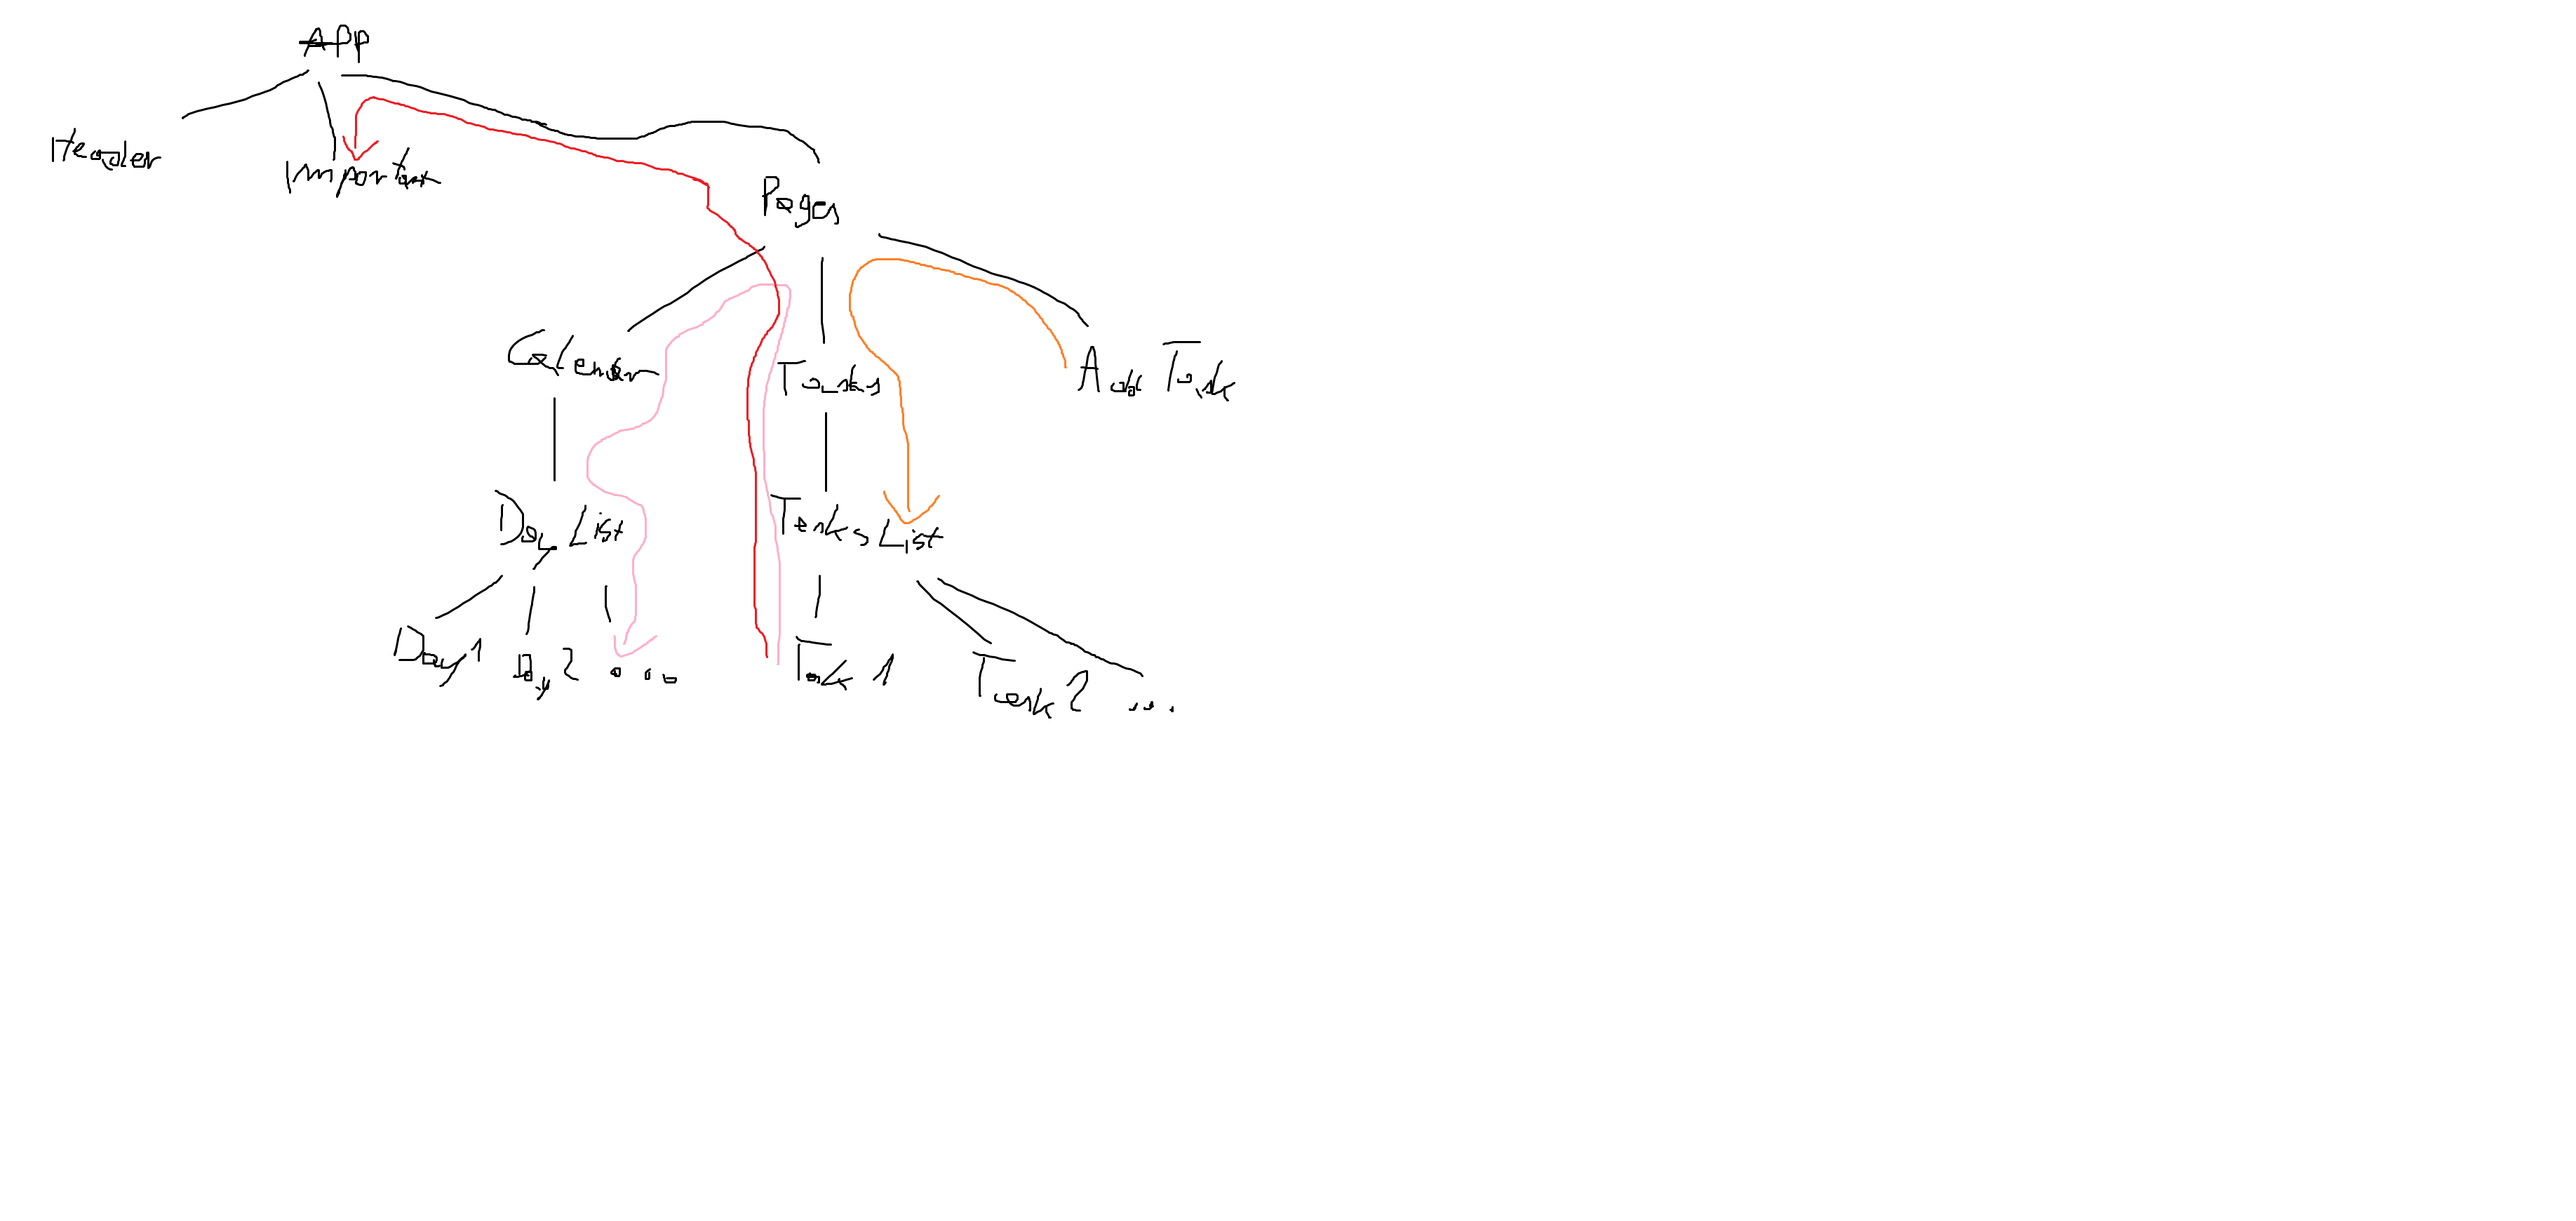 App
Header
Important
Pages
Calendar
Tasks
Add Task
Day List
Tasks List
Day 1
Day 2
...
Task 1
Task 2
...